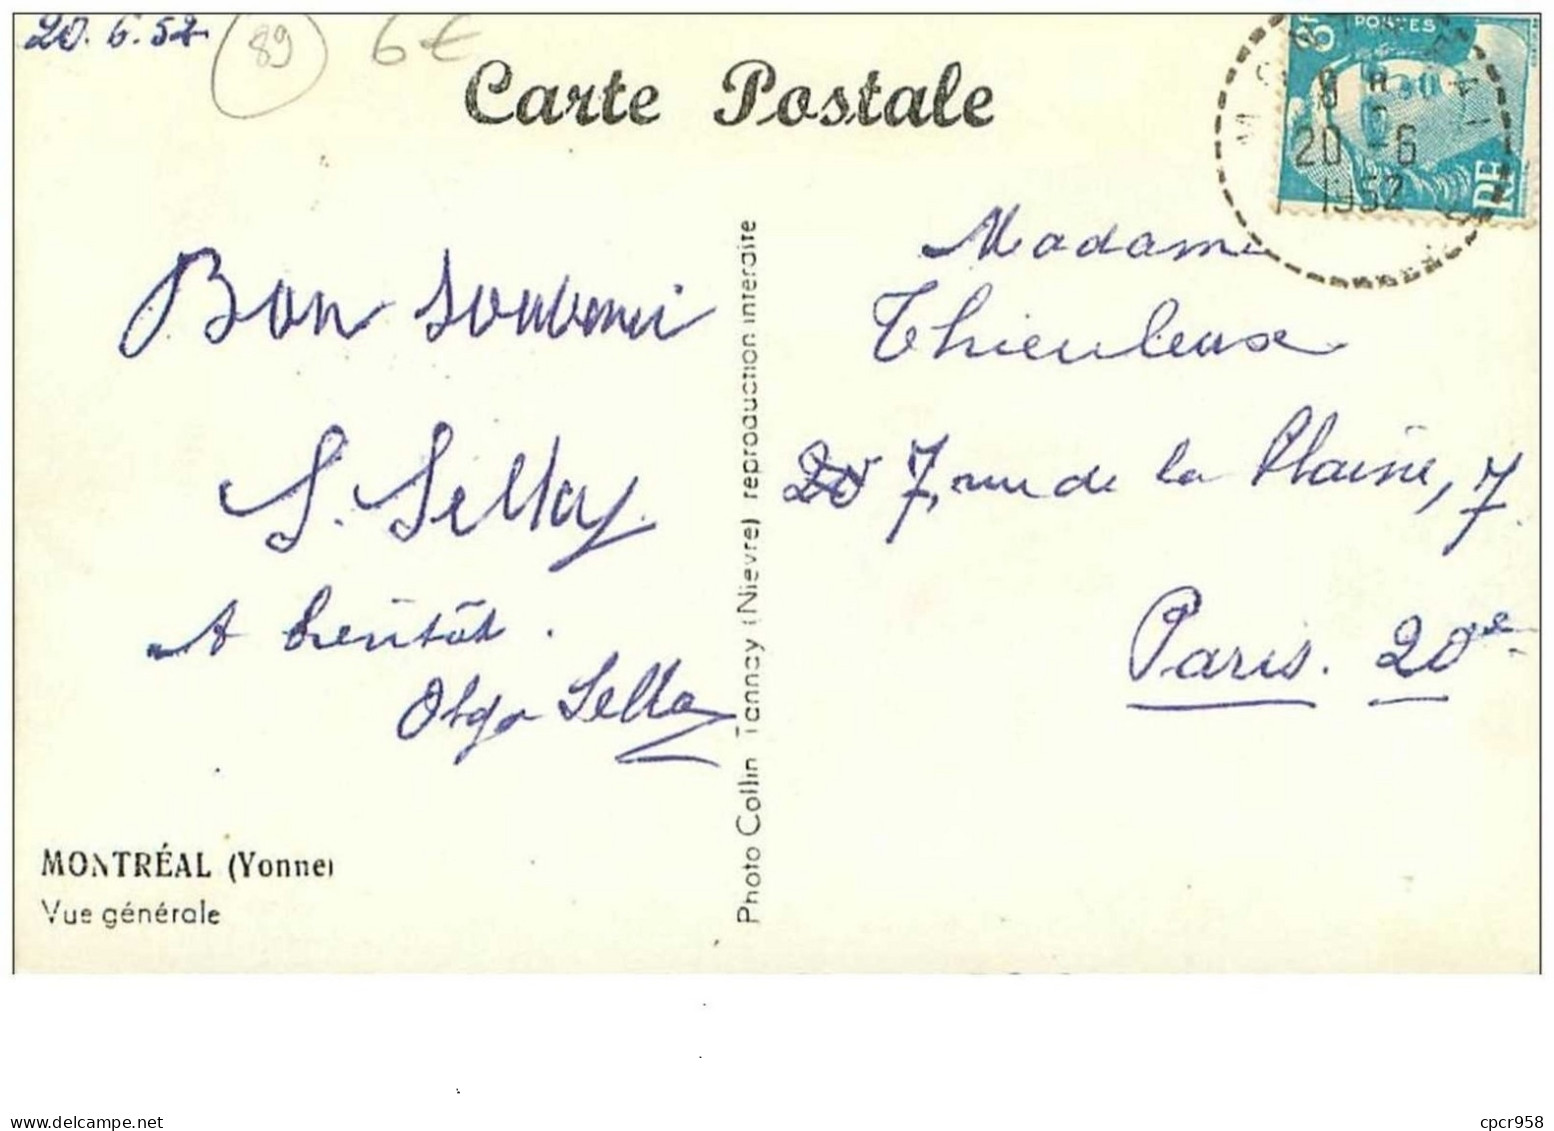 20.6.52
89
6€
Carte Postale
POSTES
RF
20 -6
1952
Bon souvenir
S. Sellay
A bientôt.
Olga Sella
Madame
Thieuleux
20 7, rue de la Plaine, 7
Paris. 20e
Photo Collin Tannay (Nievre) reproduction interdite
MONTRÉAL (Yonne)
Vue générale
www.delcampe.net
cpcr958